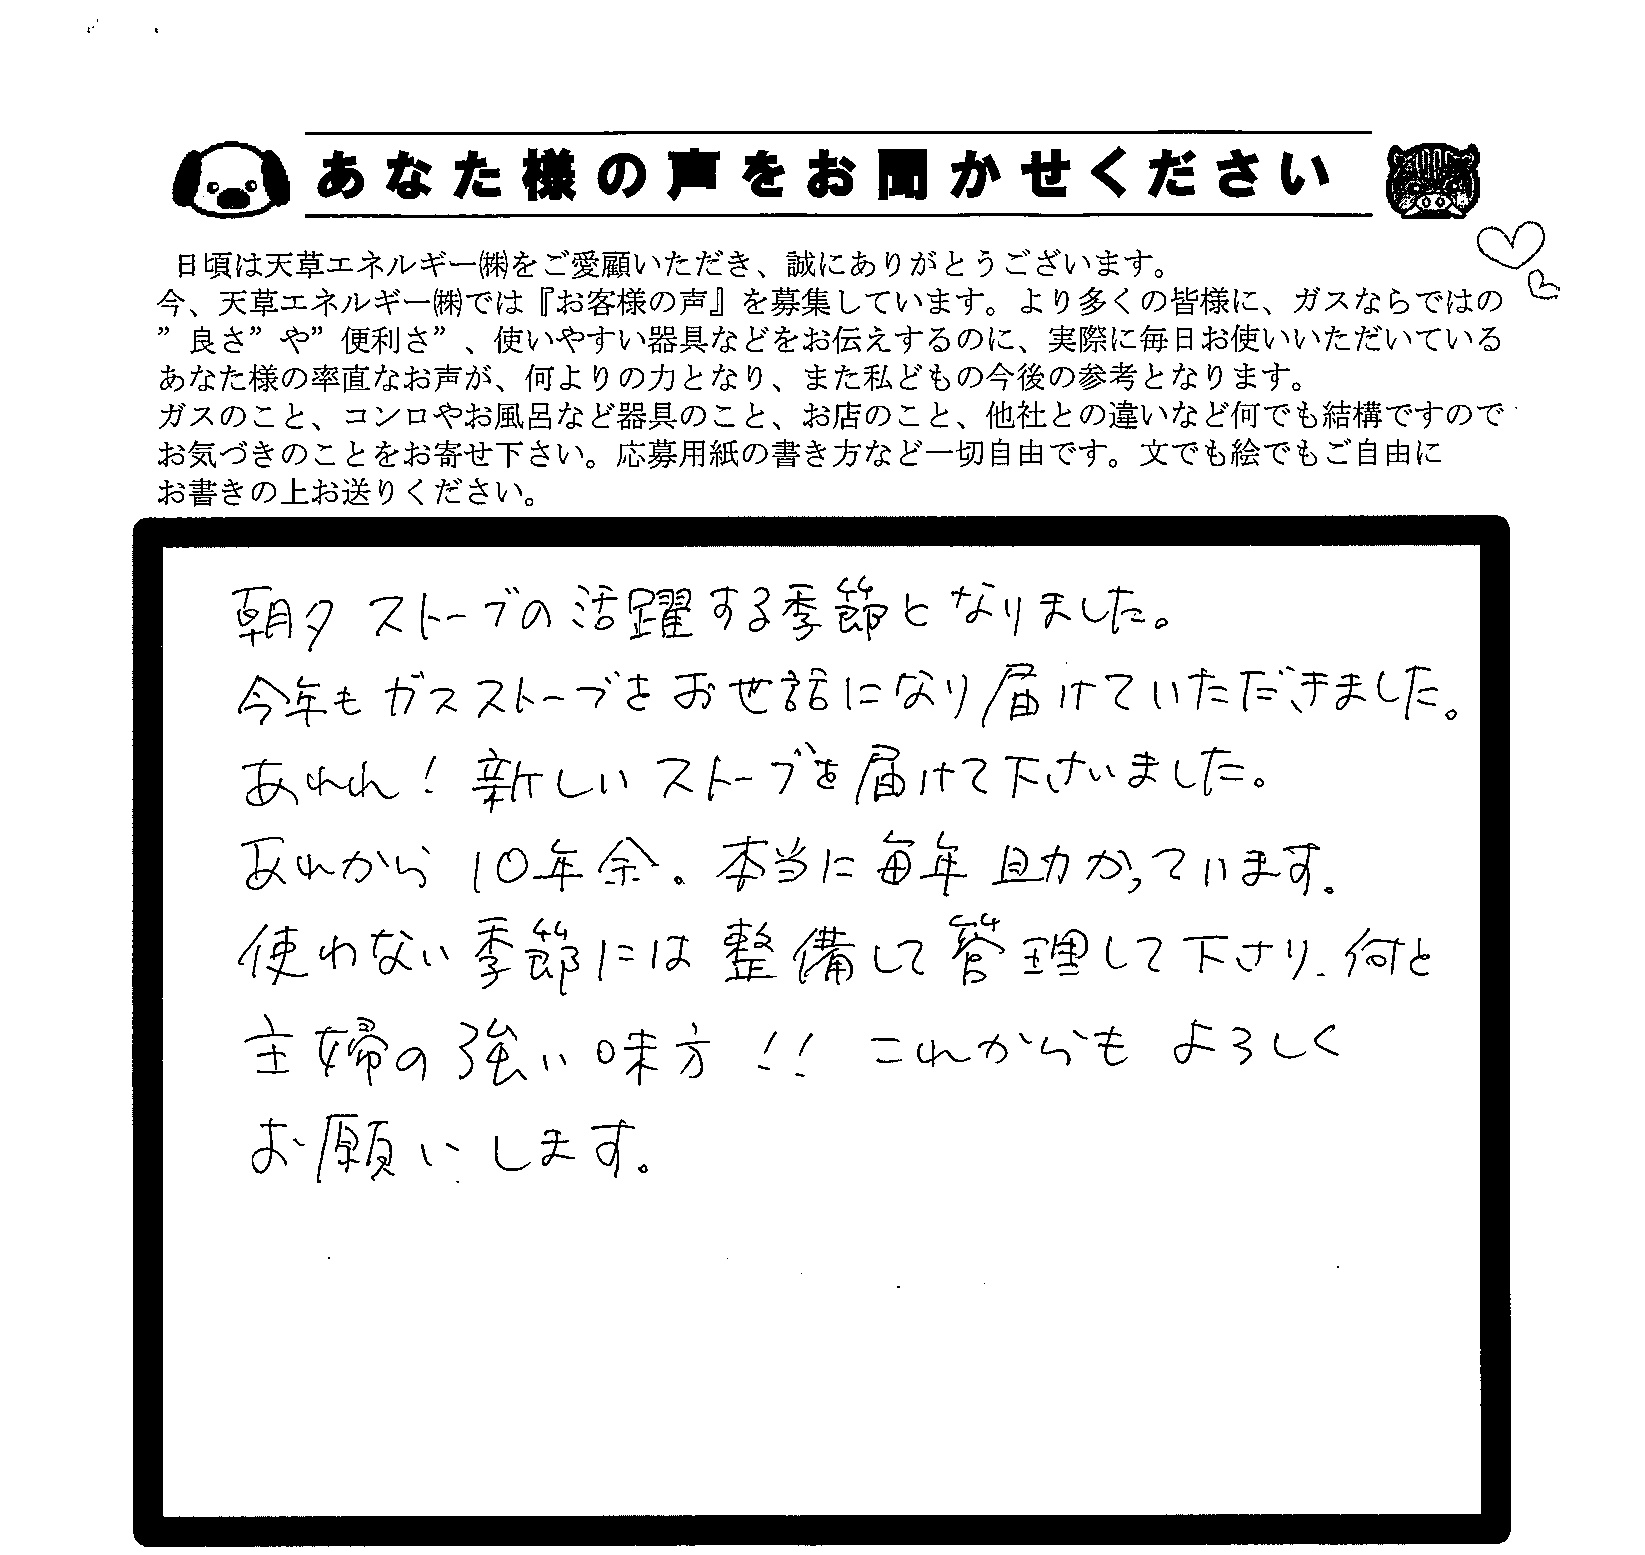 あなた様の声をお聞かせください
日頃は天草エネルギー㈱をご愛顧いただき、誠にありがとうございます。
今、天草エネルギー㈱では『お客様の声』を募集しています。より多くの皆様に、ガスならではの
”良さ”や”便利さ”、使いやすい器具などをお伝えするのに、実際に毎日お使いいただいている
あなた様の率直なお声が、何よりの力となり、また私どもの今後の参考となります。
ガスのこと、コンロやお風呂など器具のこと、お店のこと、他社との違いなど何でも結構ですので
お気づきのことをお寄せ下さい。応募用紙の書き方など一切自由です。文でも絵でもご自由に
お書きの上お送りください。
朝夕 ストーブの活躍する季節となりました。
今年も ガスストーブをお世話になり届けていただきました。
あれれ！新しいストーブを届けて下さいました。
あれから 10年余。本当に毎年 助かっています。
使わない季節には整備して管理して下さり、何と
主婦の強い味方!! これからも よろしく
お願いします。